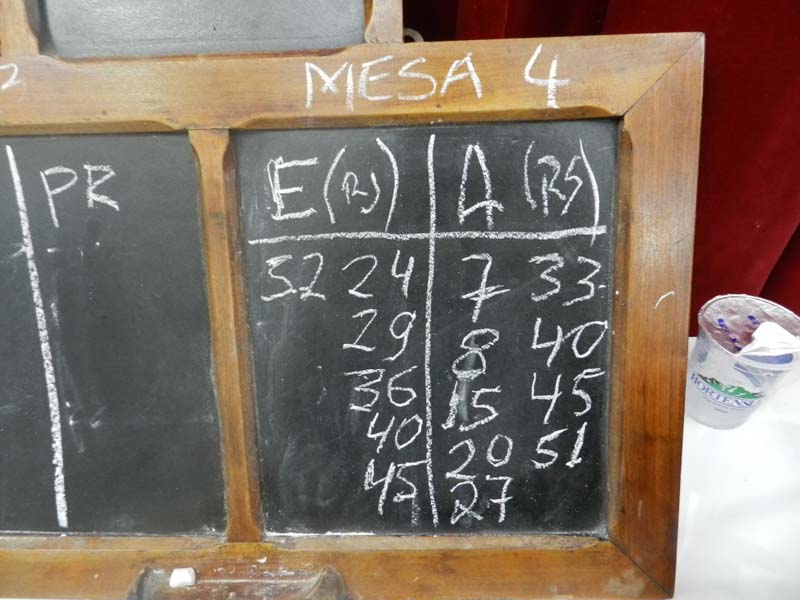 MESA 4
PR
E (RS) A (RS)
52 24 7 33
29 8 40
36 15 45
40 20 51
45 27